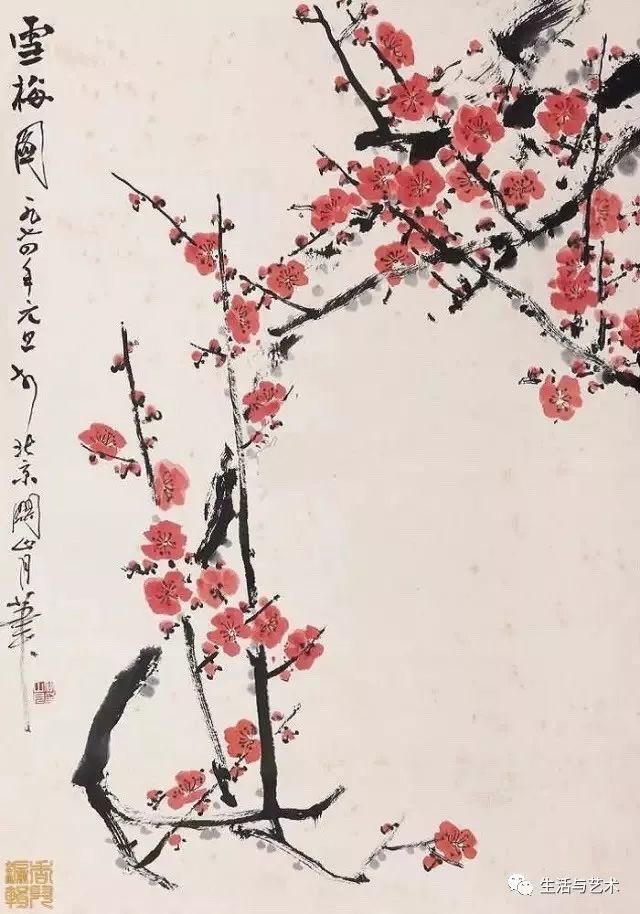 雪梅图
一九七四年元旦于
北京关山月笔
生活与艺术